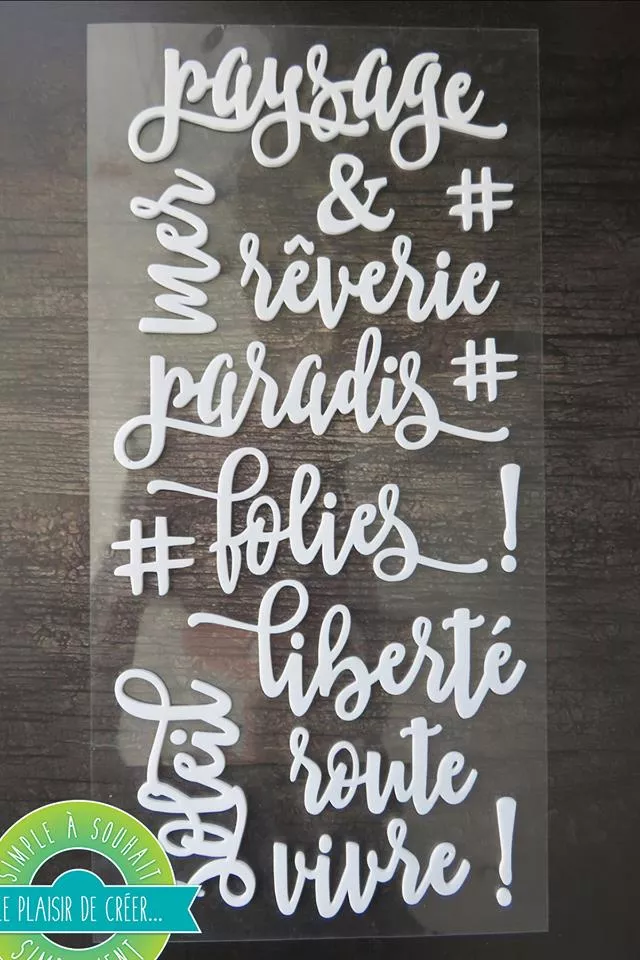 paysage
mer
& #
rêverie
paradis #
# folies !
liberté
soleil
route
vivre !
SIMPLE À SOUHAIT
LE PLAISIR DE CRÉER...
SIMPLEMENT